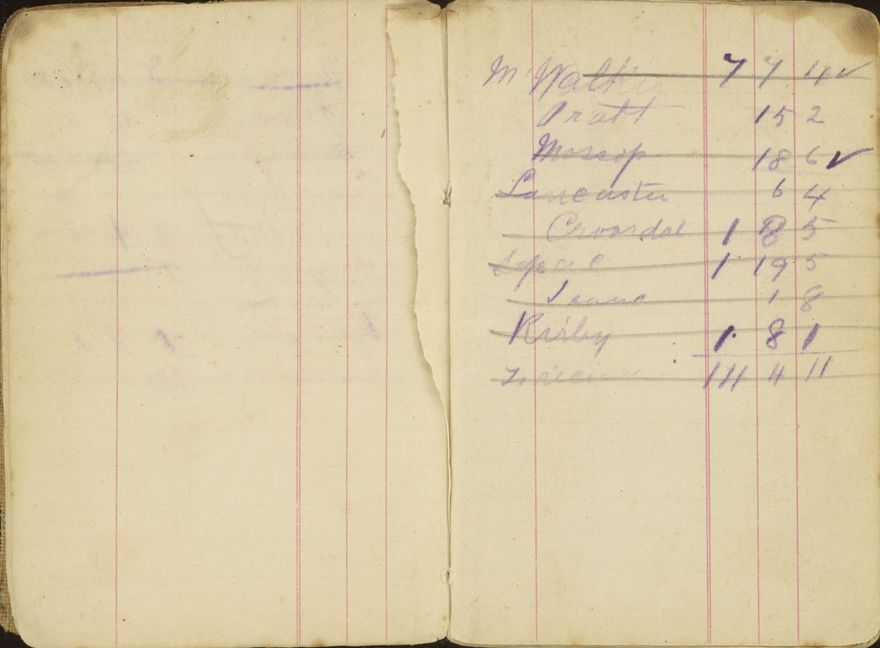 Mr Walker 7 7 4 ✓
Pratt 15 2
Mossop 18 6 ✓
Lancaster 6 4
1 8 5
1 19 5
Isaac 1 8
Kirby 1 8 1
14 4 11